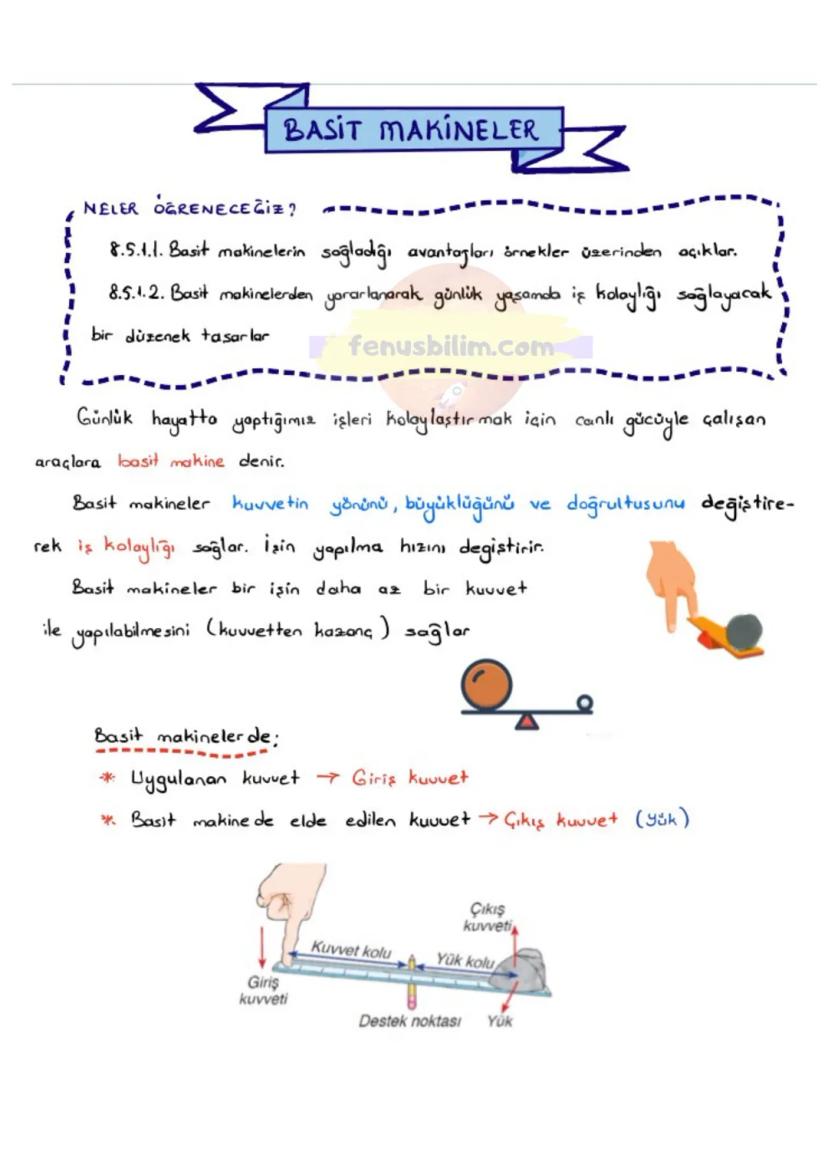 BASİT MAKİNELER
NELER ÖĞRENECEĞİZ?
8.5.1.1. Basit makinelerin sağladığı avantajları örnekler üzerinden açıklar.
8.5.1.2. Basit makinelerden yararlanarak günlük yaşamda iş kolaylığı sağlayacak
bir düzenek tasarlar
fenusbilim.com
Günlük hayatta yaptığımız işleri kolaylaştırmak için canlı gücüyle çalışan
araçlara basit makine denir.
Basit makineler kuvvetin yönünü, büyüklüğünü ve doğrultusunu değiştire-
rek iş kolaylığı sağlar. İşin yapılma hızını degiştirir.
Basit makineler bir işin daha az bir kuvvet
ile yapılabilmesini (kuvvetten kazanç) sağlar
Basit makinelerde;
* Uygulanan kuvvet → Giriş kuvvet
* Basit makinede elde edilen kuvvet → Çıkış kuvvet (yük)
Çıkış
kuvveti
Kuvvet kolu
Yük kolu
Giriş
kuvveti
Destek noktası
Yük